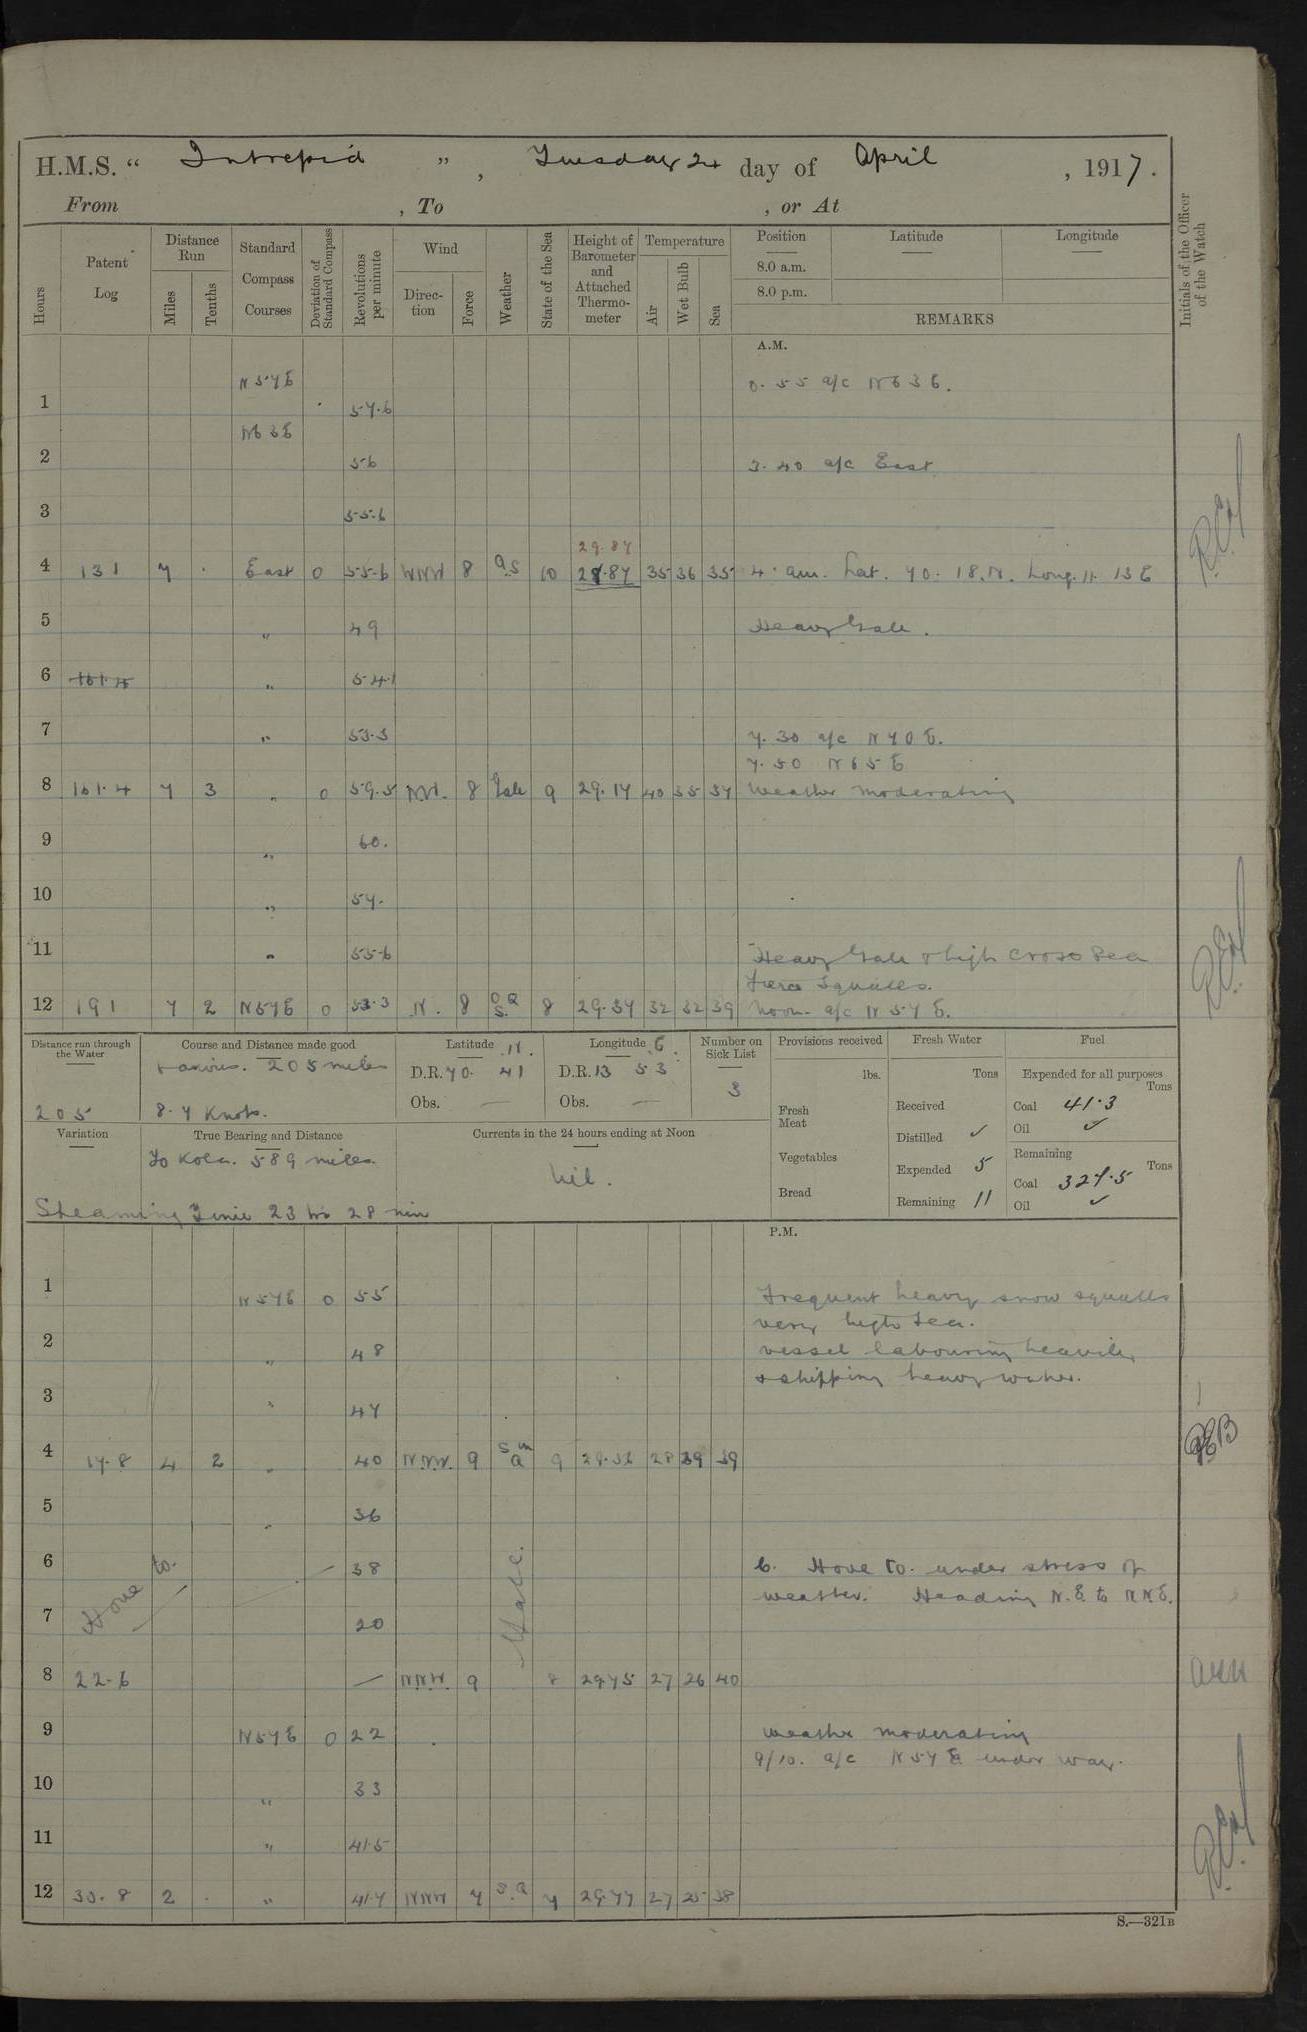 H.M.S. " Intrepid ", Tuesday 24 day of April, 1917.
From , To , or At
Hours Patent Log Distance Run Miles Tenths Standard Compass Courses Deviation of Standard Compass Revolutions per minute Wind Direction Force Weather State of the Sea Height of Barometer and Attached Thermometer Temperature Air Wet Bulb Sea Position Latitude Longitude Initials of the Officer of the Watch
8.0 a.m.
8.0 p.m.
REMARKS
A.M.
N57E 0.55 a/c N63E.
1 57.6
N63E
2 56 3.40 a/c East
3 55.6
29.87
4 131 7 . East 0 55.6 WNW 8 q.s 10 .87 35 36 35 4. am. Lat. 70. 18.N. Long. 11. 13 E
5 " 49 Heavy Gale.
6 161.4 " 54.1
7 " 53.3 7.30 a/c N70E.
7.50 N65E
8 161.4 7 3 " 0 59.5 NW. 8 Gale 9 29.17 40 35 37 Weather moderating
9 " 60.
10 " 57.
11 " 55.6 Heavy Gale & high cross sea
Fierce Squalls.
12 191 7 2 N57E 0 53.3 N. 8 o q s. 8 29.37 32 32 39 Noon. a/c N57E.
Distance run through the Water 205
Course and Distance made good various. 205 miles
8.7 Knots.
Latitude N. D.R. 70. 41 Obs. —
Longitude E. D.R. 13 53 Obs. —
Number on Sick List 3
Provisions received lbs. Fresh Meat Vegetables Bread
Fresh Water Tons Received Distilled ✓ Expended 5 Remaining 11
Fuel Expended for all purposes Tons Coal 41.3 Oil ✓ Remaining Tons Coal 327.5 Oil ✓
Variation
True Bearing and Distance To Kola. 589 miles.
Currents in the 24 hours ending at Noon Nil.
Steaming Time 23 hrs 28 min
P.M.
1 N57E 0 55 Frequent heavy snow squalls
very high sea.
2 " 48 vessel labouring heavily
& shipping heavy water.
3 " 47
4 17.8 4 2 " 40 NNW. 9 s m q 9 29.32 28 39 REB
5 " 36
6 Hove to. 38 6. Hove to. under stress of
weather. Heading N.E. to NNE.
7 20 Gale.
8 22.6 — NNW. 9 8 29.75 27 26 40
9 N57E 0 22 Weather moderating
9/10. a/c N57E under way.
10 " 33
11 " 41.5
12 30.8 2 . " 41.7 NNW 7 s.q 7 29.77 27 25 38
S.—321B